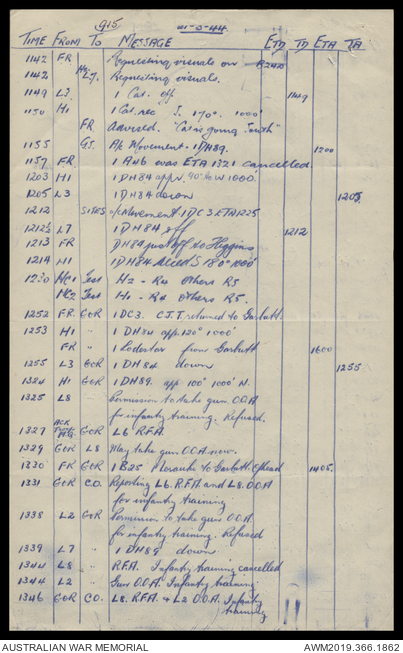 915 21-5-44
TIME FROM TO MESSAGE ETD TD ETA TA
1142 FR Requesting visuals on
1142 L7. Requesting visuals.
1149 L3 1 Cat. off 1149
1150 H1 1 Cat. rec S. 170° 1000'
FR Advised. "Cat is going South"
1155 G.I. A/c Movement. 1 DH89. 1200
1157 FR 1 Anb was ETA 1321 cancelled
1203 H1 1 DH84 app N. 40° to W 1000'
1205 L3 1 DH84 down 1205
1212 SITES a/c Movement. 1 DC3 ETA 1225
1212½ L7 1 DH84 off 1212
1213 FR DH84 just off to Higgins
1214 H1 1 DH84 S 180° 1000'
1230 HC1 Test H2 - R4 others R5
HC2 Test H1 - R4 others R5.
1252 FR GOR 1 DC3. C.J.T. returned to Garbutt.
1253 H1 " 1 DH84 app. 120° 1000'
FR " 1 Lodestar from Garbutt 1600
1255 L3 GOR 1 DH84 down 1255
1324 H1 GOR 1 DH89. app 100° 1000' N.
1325 L8 Permission to take gun O.O.A
for infantry training. Refused.
1327 ACK GOR L6 R.F.A.
1329 GOR L8 May take gun O.O.A. now.
1330 FR GOR 1 B25 Merauke to Garbutt. O/head 1405.
1331 GOR C.O. Reporting L6. R.F.A. and L8. O.O.A
for infantry training
1338 L2 GOR Permission to take gun O.O.A.
for infantry training. Refused
1339 L7 " 1 DH89 down
1344 L8 " R.F.A. Infantry training cancelled
1344 L2 " Gun O.O.A. Infantry training
1346 GOR C.O. L8. R.F.A. & L2 O.O.A. Infantry
training
AUSTRALIAN WAR MEMORIAL AWM2019.366.1862